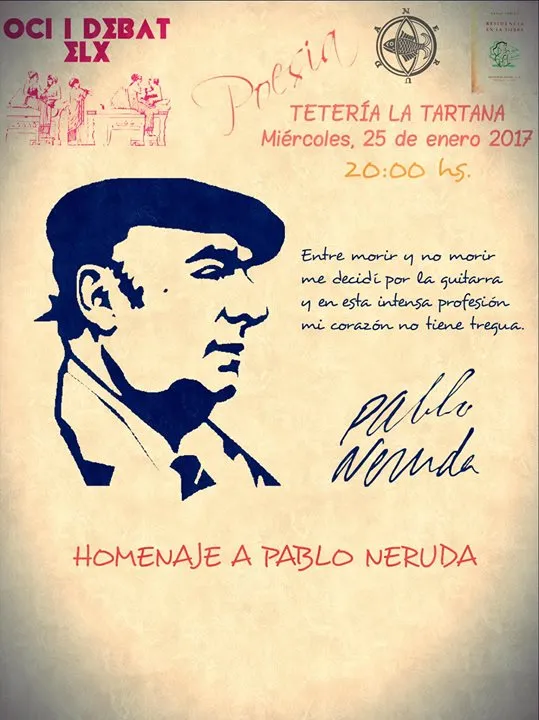 OCI I DEBAT
ELX
Poesía
NERUDA
RESIDENCIA
EN LA TIERRA
TETERÍA LA TARTANA
Miércoles, 25 de enero 2017
20:00 hs.
Entre morir y no morir
me decidí por la guitarra
y en esta intensa profesión
mi corazón no tiene tregua.
Pablo
Neruda
HOMENAJE A PABLO NERUDA